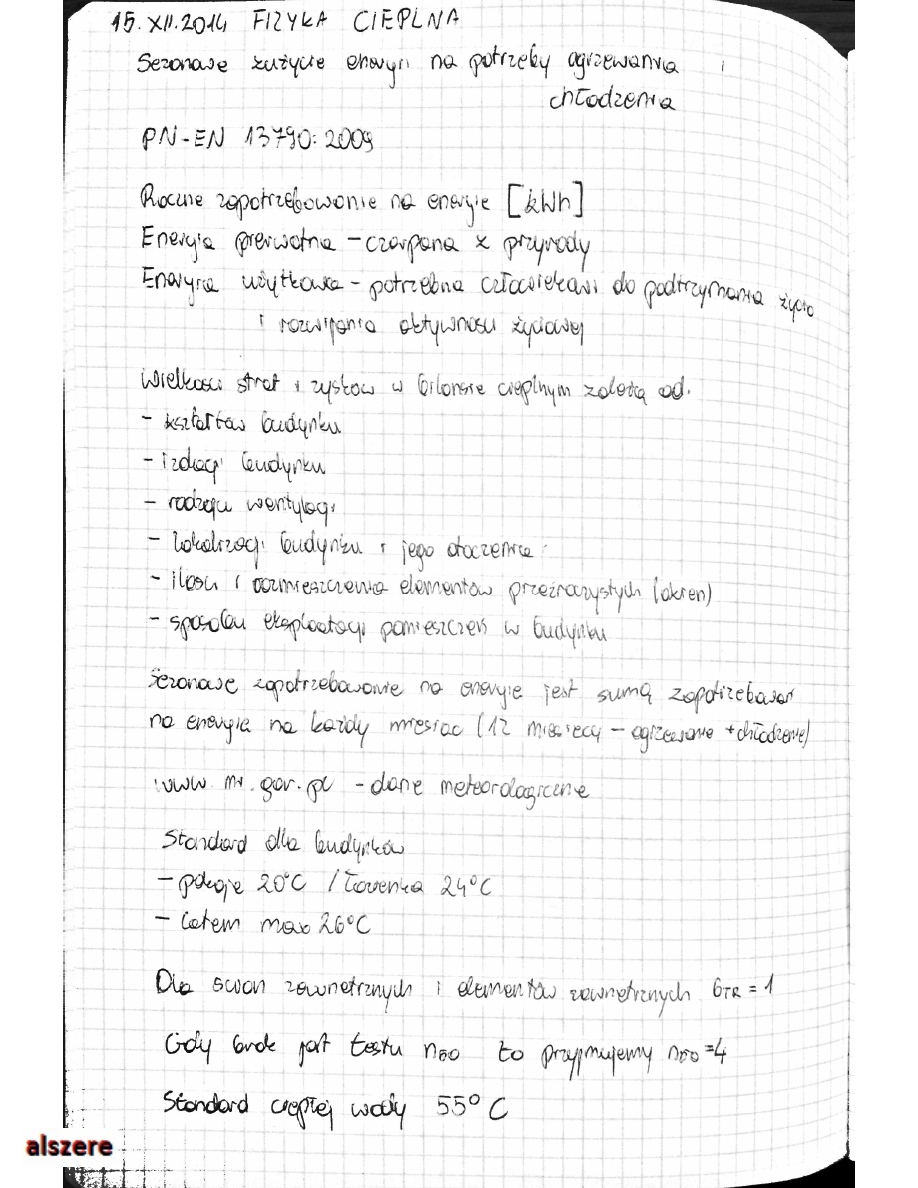 15.XII.2014 FIZYKA CIEPLNA
Sezonowe zużycie energii na potrzeby ogrzewania i
chłodzenia
PN-EN 13790:2009
Roczne zapotrzebowanie na energię [kWh]
Energia pierwotna - czerpana z przyrody
Energia użytkowa - potrzebna człowiekowi do podtrzymania życia
i rozwijania aktywności życiowej
Wielkości strat i zysków w bilansie cieplnym zależą od:
- kształtów budynku
- izolacji budynku
- rodzaju wentylacji
- lokalizacji budynku i jego otoczenia
- ilości i rozmieszczenia elementów przeźroczystych (okien)
- sposobu eksploatacji pomieszczeń w budynku
Sezonowe zapotrzebowanie na energię jest sumą zapotrzebowań
na energię na każdy miesiąc (12 miesięcy - ogrzewanie + chłodzenie)
www.mi.gov.pl - dane meteorologiczne
Standard dla budynków
- pokoje 20°C / łazienka 24°C
- latem max 26°C
Dla ścian zewnętrznych i elementów zewnętrznych bTR = 1
Gdy brak jest testu n50 to przyjmujemy n50=4
Standard ciepłej wody 55°C
alszere